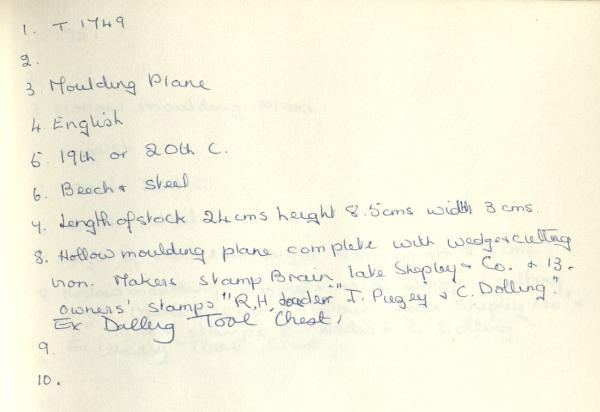 1. T. 1749
2.
3. Moulding Plane
4. English
5. 19th or 20th C.
6. Beech & Steel
7. Length of stock 24cms height 8.5cms width 3cms.
8. Hollow moulding plane complete with wedge & cutting
iron. Makers stamp Brain late Shepley & Co. & 13.
owners' stamps "R.H "I. Puzey & C. Dolling."
Ex Dalling Tool Chest.
9.
10.